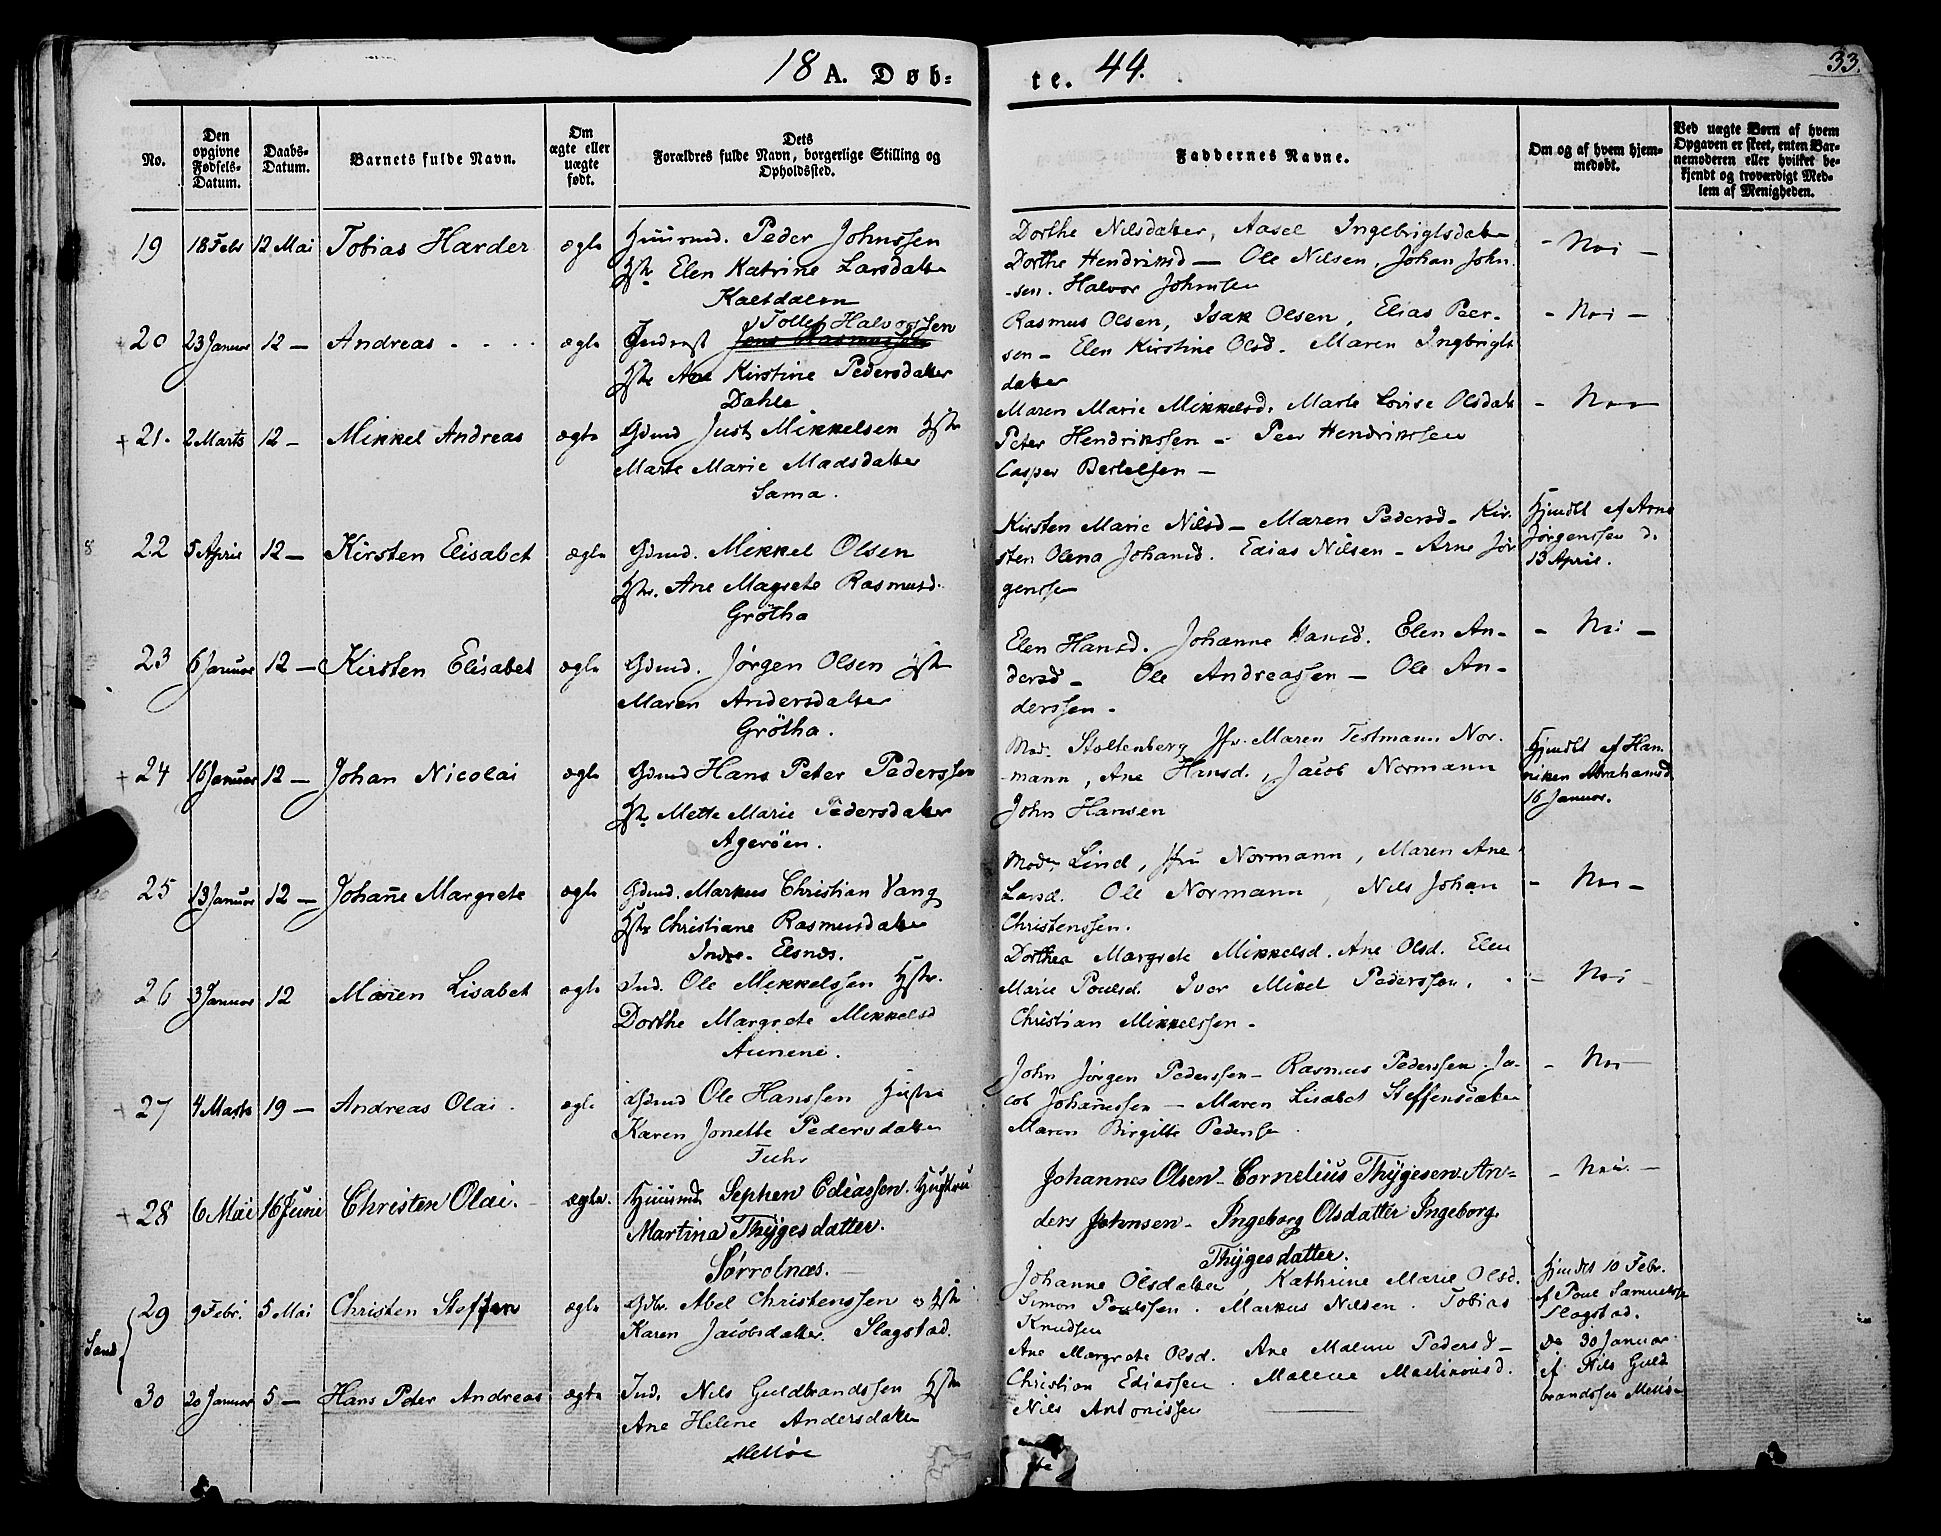 18 A. Døb- te. 44.
33.
No.
Den opgivne Fødsels-Datum.
Daabs-Datum.
Barnets fulde Navn.
Om ægte eller uægte født.
Dets Forældres fulde Navn, borgerlige Stilling og Opholdssted.
Faddernes Navne.
Om og af hvem hjemmedøbt.
Ved uægte Børn af hvem Opgaven er skeet, enten Barnemoderen eller hvilket bekjendt og troværdigt Medlem af Menigheden.
19 18 Febr 12 Mai Tobias Harder ægte
Huusmd. Peder Johnssen
Hstr Elen Katrine Larsdatter
Kaltdalen
Dorthe Nilsdatter, Aasel Ingebrigtsdatter
Dorthe Hendriksd — Ole Nilsen, Johan John-
-sen. Halvor Johnssen
- Nei -
20 23 Januar 12 — Andreas . . . . ægte
Tollef Halvorssen
Inderst Jens Rasmussen
Hstr Ane Kirstine Pedersdatter
Dahle
Rasmus Olsen, Isak Olsen, Elias Peer-
sen - Elen Kirstine Olsd. Maren Ingbrigts
datter
- Nei -
+ 21. 2 Marts 12 - Mikkel Andreas ægte
Gdmd Just Mikkelsen Hstr
Marte Marie Madsdatter
Sama.
Maren Marie Mikkelsd. Marte Lovise Olsdatt
Peter Hendrikssen - Peer Hendrikssen
Casper Bertelsen —
- Nei
22 5 April 12 — Kirsten Elisabet ægte
Gdmd. Mikkel Olsen
Hstr. Ane Magrete Rasmusd.
Grötha
Kirsten Marie Nilsd — Maren Pedersd - Kir-
sten Olena Johansd. Edias Nilsen - Arne Jör
genssen
Hjmdbt af Arne
Jørgenssen d.
13 April.
23 6 Januar 12 — Kirsten Elisabet ægte
Gdmd. Jørgen Olsen Hstr
Maren Andersdatter
Grötha.
Elen Hansd. Johanne Hansd. Elen An-
dersd - Ole Andreassen — Ole An-
derssen -
- Nei -
+ 24 16 Januar 12 — Johan Nicolai ægte
Gdmd Hans Peter Pederssen
Hstr Mette Marie Pedersdatter
Ageröen.
Mad. Stoltenberg Jfr. Maren Testmann Nor-
-mann, Ane Hansd., Jacob Normann
John Hansen
Hjmdbt af Han-
niken Abrahamsd
16 Januar.
25 13 Januar 12 — Johañe Margrete ægte
Gdmd. Markus Christian Vang
Hstr Christiane Rasmusdatter
Indre- Elsnæs.
Mad. Lind, Jfru Normann, Maren Ane
Larsd. Ole Normann, Nils Johan
Christenssen.
- Nei -
26 3 Januar 12 Maren Lisabet ægte
Ind. Ole Mikkelssen Hstr.
Dorthe Margrete Mikkelsd
Aunene.
Dorthea Margrete Mikkelsd. Ane Olsd. Elen
Marie Poulsd. Iver Mikel Pederssen,
Christian Mikkelssen -
- Nei -
27 4 Marts 19 — Andreas Olai. ægte
Gdmd Ole Hanssen Hustru
Karen Jonette Pedersdatter
John Jörgen Pederssen - Rasmus Pederssen. Ja-
cob Johañessen — Maren Lisabet Steffensdatter
Maren Birgitte Pederssen.
- Nei
+ 28 6 Mai 16 Juni Christen Olai. ægte.
Huusmd Sephen Ediassen. Hustru
Martina Thygesdatter.
Sørrolnæs.
Johannes Olsen - Cornelius Thygesen An-
ders Johnsen - Ingeborg Olsdatter Ingeborg
Thygesdatter.
- Nei. -
Sand
29 9 Febr. 5 Mai Christen Steffen ægte
Gdbr. Abel Christenssen og Hstr
Karen Jacobsdatter. Slagstad.
Johanne Olsdatter Kathrine Marie Olsd.
Simon Poulssen. Markus Nilsen. Tobias
Knudsen
Hjmdbt 10 Febr.
af Poul Samuelsen
Slagstad.
30 20 Januar 5 — Hans Peter Andreas ægte
Ind. Nils Guldbrandssen Hstr
Ane Helene Andersdatter
Melløe
Ane Margrete Olsd. Ane Malene Pedersd —
Christian Ediassen. Malene Martinusd.
Nils Antonissen
De 30 Januar
af Nils Guld
brandssen Melløe